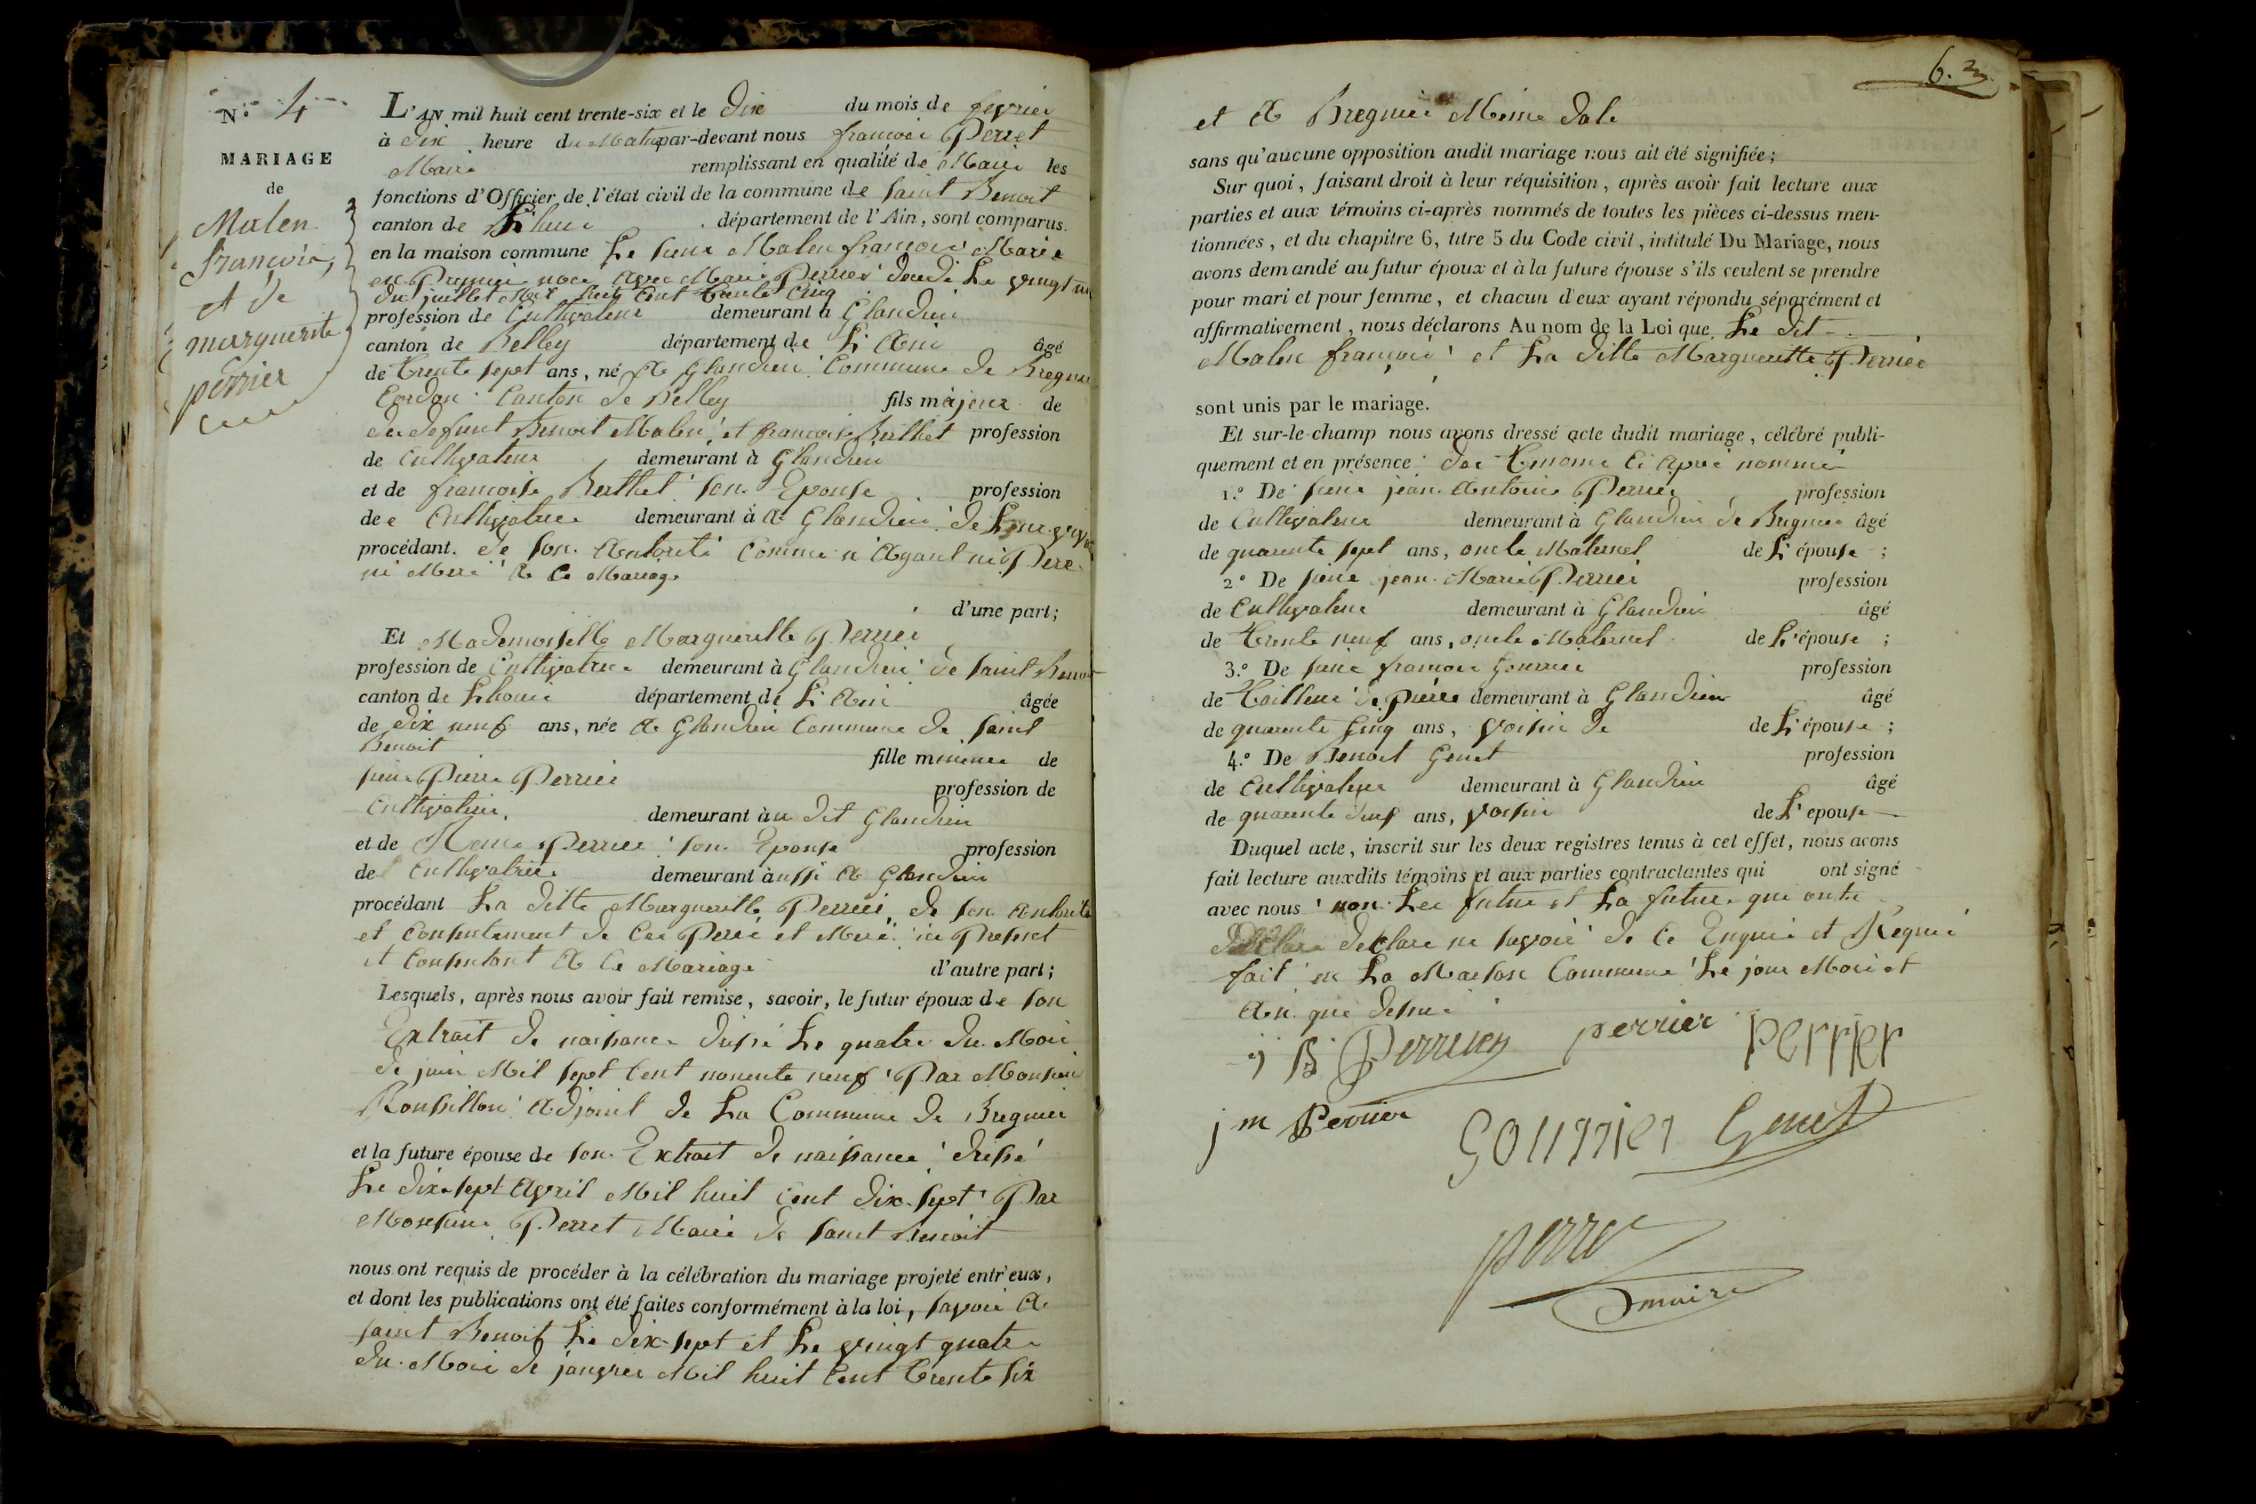 N.º 4
MARIAGE
de
Malen
françois,
et de
marguerite
perrier
L'AN mil huit cent trente-six et le dix du mois de fevrier
à dix heure du Matin par-devant nous françois Perret
Maire remplissant en qualité de Maire les
fonctions d'Officier de l'état civil de la commune de saint Benoit
canton de Lhuis département de l'Ain, sont comparus
en la maison commune Le sieur Malen françois Marié
en Premier noce Avec Marie Perrier Le vingt
du juillet Mil huit Cent trente Cinq
profession de Cultivateur demeurant à Glandieu
canton de Belley département de L'Ain âgé
de trente sept ans, né A Glandieu Commune de Bregnier
Cordon Canton de Belley fils majeur de
du defunt Benoit Malen et francoise Berthet profession
de Cultivateur demeurant à Glandieu
et de francoise Berthet son Epouse profession
de Cultivatrice demeurant à A Glandieu de
procédant de son Autorité Comme n'Ayant ni Pere
ni Mere A Ce Mariage
d'une part;
Et Mademoiselle Margueritte Perrier
profession de Cultivatrice demeurant à Glandieu de saint Benoit
canton de Lhouis département de L'Ain âgée
de dix neuf ans, née A Glandieu Commune de saint
Benoit fille mineure de
sieur Pierre Perrier profession de
Cultivateur demeurant à u dit Glandieu
et de Perrier son Epouse profession
de Cultivatrice demeurant à ussi A Glandieu
procédant La ditte Margueritte Perrier de son Autorité
et Consentement de Ces Pere et Mere ici Present
et Consentant A Ce Mariage d'autre part;
Lesquels, après nous avoir fait remise, savoir, le futur époux de son
Extrait de naissance dressé Le quatre du Mois
de juin Mil sept Cent nonente neuf Par Monsieur
Roussillon Adjoint de La Commune de Bregnier
et la future épouse de son Extrait de naissance dressé
Le dix-sept Avril Mil huit Cent dix-sept Par
Monsieur Perret Maire de saint Benoit
nous ont requis de procéder à la célébration du mariage projeté entr'eux,
et dont les publications ont été faites conformément à la loi, savoir A
saint Benoit Le dix-sept et Le vingt quatre
du Mois de janvier Mil huit Cent trente six
6.
et A Bregnier Même date
sans qu'aucune opposition audit mariage nous ait été signifiée;
Sur quoi, faisant droit à leur réquisition, après avoir fait lecture aux
parties et aux témoins ci-après nommés de toutes les pièces ci-dessus men-
tionnées, et du chapitre 6, titre 5 du Code civil, intitulé Du Mariage, nous
avons demandé au futur époux et à la future épouse s'ils veulent se prendre
pour mari et pour femme, et chacun d'eux ayant répondu séparément et
affirmativement, nous déclarons Au nom de la Loi que Le dit
Malen françois et La ditte Margueritte Perrier
sont unis par le mariage.
Et sur-le-champ nous avons dressé acte dudit mariage, célébré publi-
quement et en présence des temoins Ci Après nommés
1.º De sieur jean Antoine Perrier profession
de Cultivateur demeurant à Glandieu de Bregnier âgé
de quarente sept ans, oncle Maternel de L'épouse ;
2.º De sieur jean Marie Perrier profession
de Cultivateur demeurant à Glandieu âgé
de trente neuf ans, oncle Maternel de L'épouse ;
3.º De sieur francois Gourrier profession
de tailleur de Pierre demeurant à Glandieu âgé
de quarente Cinq ans, voisin de de L'épouse ;
4.º De Benoit Genet profession
de Cultivateur demeurant à Glandieu âgé
de quarente ans, voisin de L'epouse
Duquel acte, inscrit sur les deux registres tenus à cet effet, nous avons
fait lecture auxdits témoins et aux parties contractantes qui ont signé
avec nous non Les futur et La future qui ont
declare ne savoir de Ce Enquis et Requis
fait en La Maison Commune Le jour Mois et
An que dessus
perrier perrier
j m Perrier Gourrier Genet
perret
maire